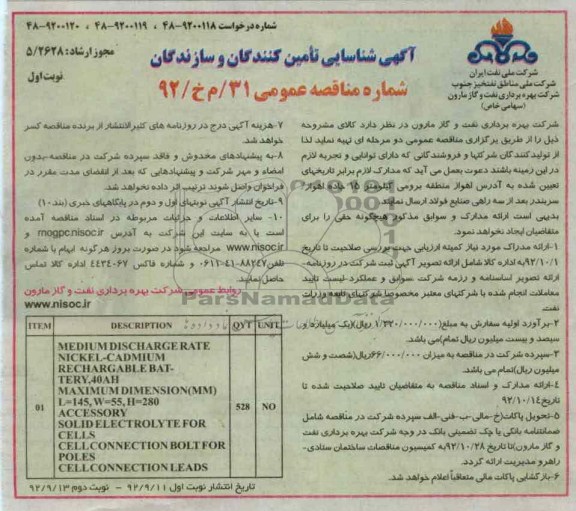 شماره درخواست ۹۲۰۰۱۱۸-۴۸ ، ۹۲۰۰۱۱۹-۴۸ ، ۹۲۰۰۱۲۰-۴۸
مجوز ارشاد: ۵/۲۶۲۸
نوبت اول
آگهی شناسایی تأمین کنندگان و سازندگان
شماره مناقصه عمومی ۳۱/م خ/۹۲
شرکت ملی نفت ایران
شرکت ملی مناطق نفتخیز جنوب
شرکت بهره برداری نفت و گاز مارون
(سهامی خاص)
شرکت بهره برداری نفت و گاز مارون در نظر دارد کالای مشروحه
ذیل را از طریق برگزاری مناقصه عمومی دو مرحله ای تهیه نماید لذا
از تولید کنندگان شرکتها و فروشندگانی که دارای توانایی و تجربه لازم
در این زمینه باشند دعوت بعمل می آید که مدارک لازم برابر تاریخهای
تعیین شده به آدرس اهواز منطقه برومی کیلومتر ۱۵ جاده اهواز
سربندر بعد از سه راهی صنایع فولاد ارسال نمایند.
بدیهی است ارائه مدارک و سوابق مذکور هیچگونه حقی را برای
متقاضیان ایجاد نخواهد نمود.
۱-ارائه مدراک مورد نیاز کمیته ارزیابی جهت بررسی صلاحیت تا تاریخ
۹۲/۱۰/۱به اداره کالا شامل ارائه تصویر آگهی ثبت شرکت در روزنامه-
ارائه تصویر اساسنامه و رزمه شرکت-سوابق و عملکرد-لیست تایید
معاملات انجام شده با شرکتهای معتبر مخصوصا شرکتهای تابعه وزارت
نفت.
۲-برآورد اولیه سفارش به مبلغ(۱/۳۲۰/۰۰۰/۰۰۰ ریال)(یک میلیارد و
سیصد و بیست میلیون ریال تمام)می باشد.
۳-سپرده شرکت در مناقصه به میزان ۶۶/۰۰۰/۰۰۰ریال(شصت و شش
میلیون ریال)تمام می باشد.
۴-ارائه مدارک و اسناد مناقصه به متقاضیان تایید صلاحیت شده تا
تاریخ۹۲/۱۰/۱۴
۵-تحویل پاکات(ج-مالی-ب-فنی-الف سپرده شرکت در مناقصه شامل
ضمانتنامه بانکی یا چک تضمینی بانک در وجه شرکت بهره برداری نفت
و گاز مارون)تا تاریخ ۹۲/۱۰/۲۸به کمیسیون مناقصات ساختمان ستادی-
راهرو مدیریت ارائه گردد.
۶-بازگشایی پاکات مالی متعاقباً اعلام خواهد شد.
۷-هزینه آگهی درج در روزنامه های کثیرالانتشار از برنده مناقصه کسر
خواهد شد.
۸-به پیشنهادهای مخدوش و فاقد سپرده شرکت در مناقصه-بدون
امضاء و مهر شرکت و پیشنهادهایی که بعد از انقضای مدت مقرر در
فراخوان واصل شوند ترتیب اثر داده نخواهد شد.
۹-تاریخ انتشار آگهی نوبتهای اول و دوم در پایگاههای خبری (بند ۱۰)
۱۰- سایر اطلاعات و جزئیات مربوطه در اسناد مناقصه آمده
است یا به سایت این شرکت به آدرس mogpc.nisoc.ir و
www.nisoc.ir مراجعه شود در صورت بروز هر گونه ابهام با شماره
تلفن۸۸۲۴۷-۰۶۱۱-۴۱ و شماره فاکس ۴۴۳۴۰۶۷ اداره کالا تماس
حاصل نمایید.
روابط عمومی شرکت بهره برداری نفت و گاز مارون
www.nisoc.ir
ParsNamadData
ITEM DESCRIPTION QYT UNIT
01 MEDIUM DISCHARGE RATE
NICKEL-CADMIUM
RECHARGABLE BAT-
TERY,40AH
MAXIMUM DIMENSION(MM)
L=145, W=55, H=280
ACCESSORY
SOLID ELECTROLYTE FOR
CELLS
CELL CONNECTION BOLT FOR
POLES
CELL CONNECTION LEADS
528 NO
تاریخ انتشار نوبت اول ۹۲/۹/۱۱ - نوبت دوم ۹۲/۹/۱۳